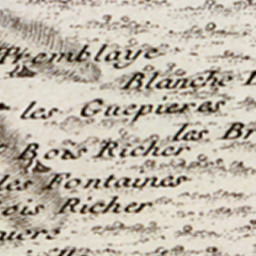 Tremblaye
Blanche
les Guepieres
les Br
Bois Richer
les Fontaines
ois Richer
uers